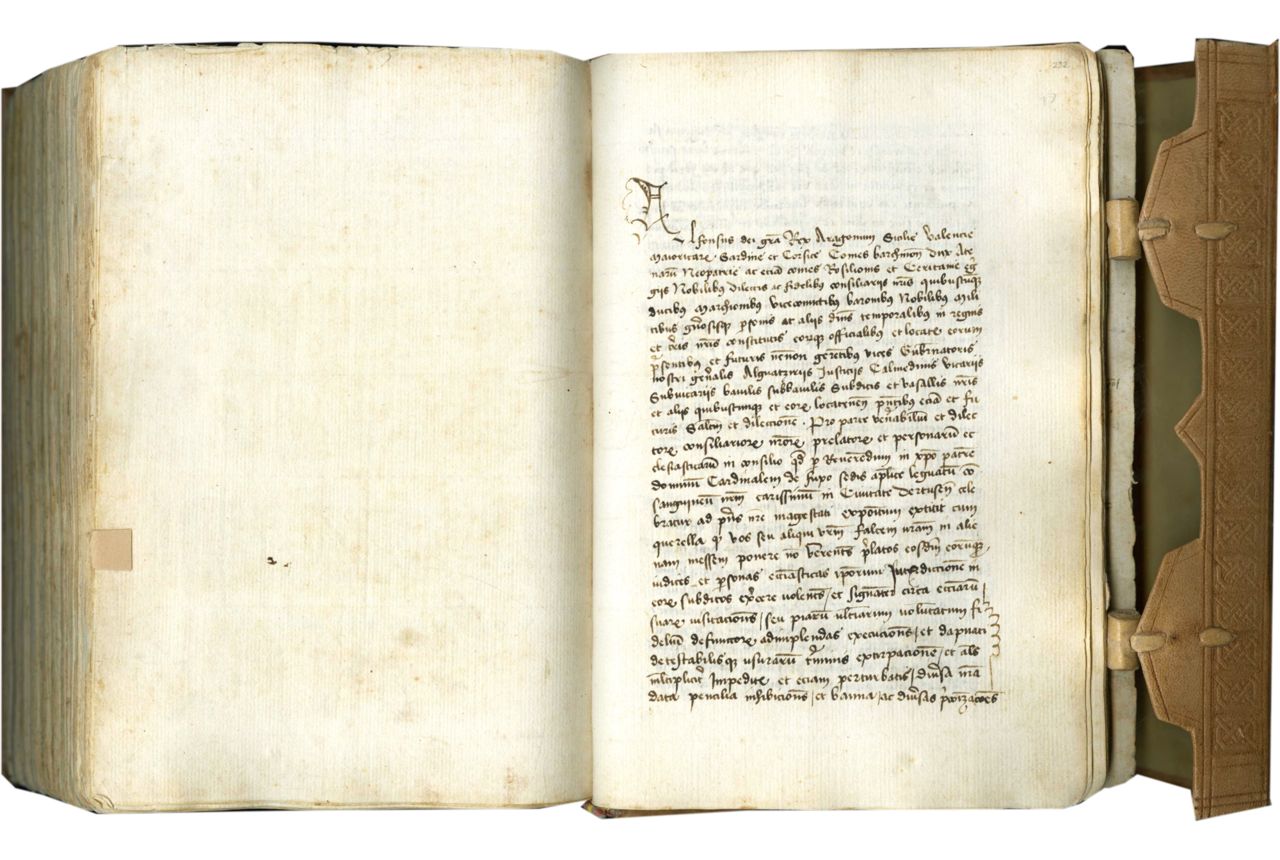 232
Alfonsus dei gr̃a Rex Aragonum Sicilie Valencie
Maioricarꝝ Sardine et Corsice Comes barchñon Dux Athe
narũ Neopatrie ac eciã comes Rossilionis et Ceritanie egᵉ
giis Nobilibꝫ dilectis ac fidelibꝫ consiliariis nr̃is quibuscũqꝫ
ducibꝫ Marchionibꝫ vicecomitibꝫ baronibꝫ Nobilibꝫ mili
tibus gñosisqꝫ ꝑsonis ac aliis dñis temporalibꝫ in regnis
et tr̃is nr̃is constitutis eorũqꝫ officialibꝫ et locateñ eorum
p̃sentibꝫ et futuris necnon gerẽtibꝫ vices Gub̃natoris
nostri gñalis Alguatziriis Iusticiis Calmedinis vicariis
Subvicariis baiulis subbaiulis Subditis et vasallis nr̃is
et aliis quibuscumqꝫ et eorꝝ locateñen p̃ntibꝫ eciã et fu
turis Salt̃m et dilectione. Pro parte veñabiliũ et dilec
torꝝ consiliariorꝝ nr̃orꝝ prelatorꝝ et personarũ ec
clesiasticarũ in consilio qđ ꝑ Reuerẽdum in xp̃o patrẽ
dominũ Cardinalem de fuxo sedis ap̃lice legatũ cõ
sanguineũ nr̃m carissimũ in Ciuitate dertuseñ cele
bratur ad p̃ñs nr̃e magestati expositum extitit cum
querella qꝫ vos seu aliqui vr̃m falcem vr̃am in alie
nam messem ponere nõ verent̃s p̃latos eosdem eorumqꝫ
iudices et ꝑsonas eccl̃iasticas ip̃orum Jurisdictionẽ in
eorꝝ subditos ex̃cere volent̃s / et signant̃ circa eccl̃iarũ
suarꝝ visitacion̄s / seu piarũ ultĩarum voluntatum fi
deliũ defunctorꝝ adimplendas execucion̄s / et dapnati
detestabilisqꝫ usurarũ cr̃iminis extirpacionẽ / et al̃s
ml̃tiplicit̃ Impedire et eciam perturbatis / div̾sa mã
data penalia inhibicion̄s / et banna / ac div̾sas p̃conizacõẽs